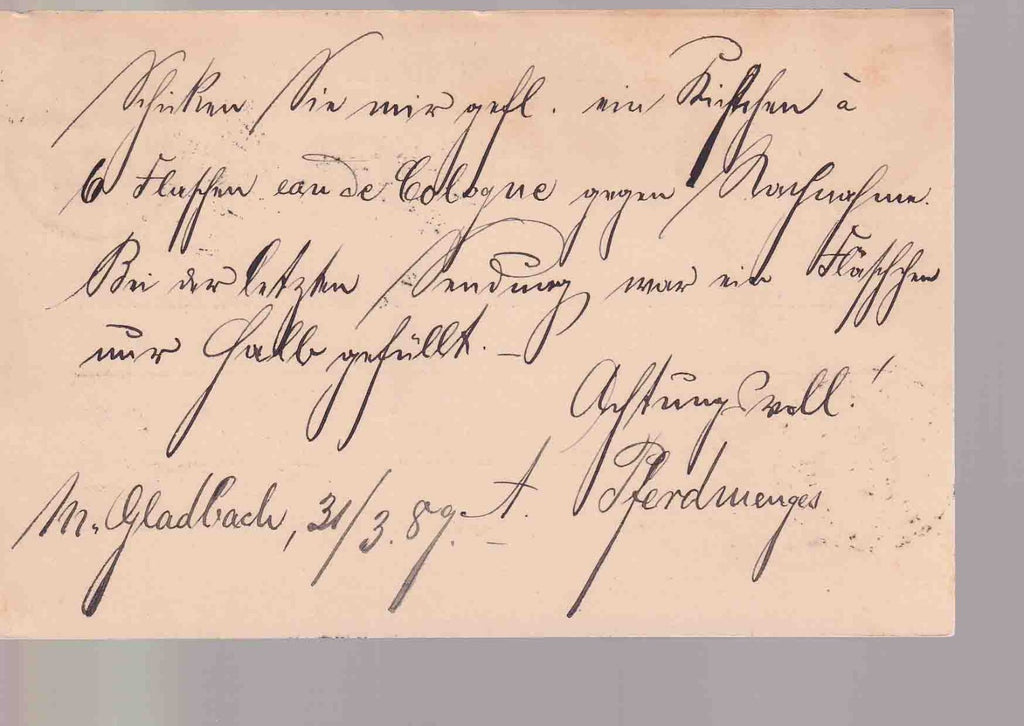 Schicken Sie mir gefl. ein Kistchen à
6 Flaschen eau de Cologne gegen Nachnahme.
Bei der letzten Sendung war ein Fläschchen
nur halb gefüllt. –
Achtungsvoll!
M. Gladbach, 31/3. 89. A. Pferdmenges